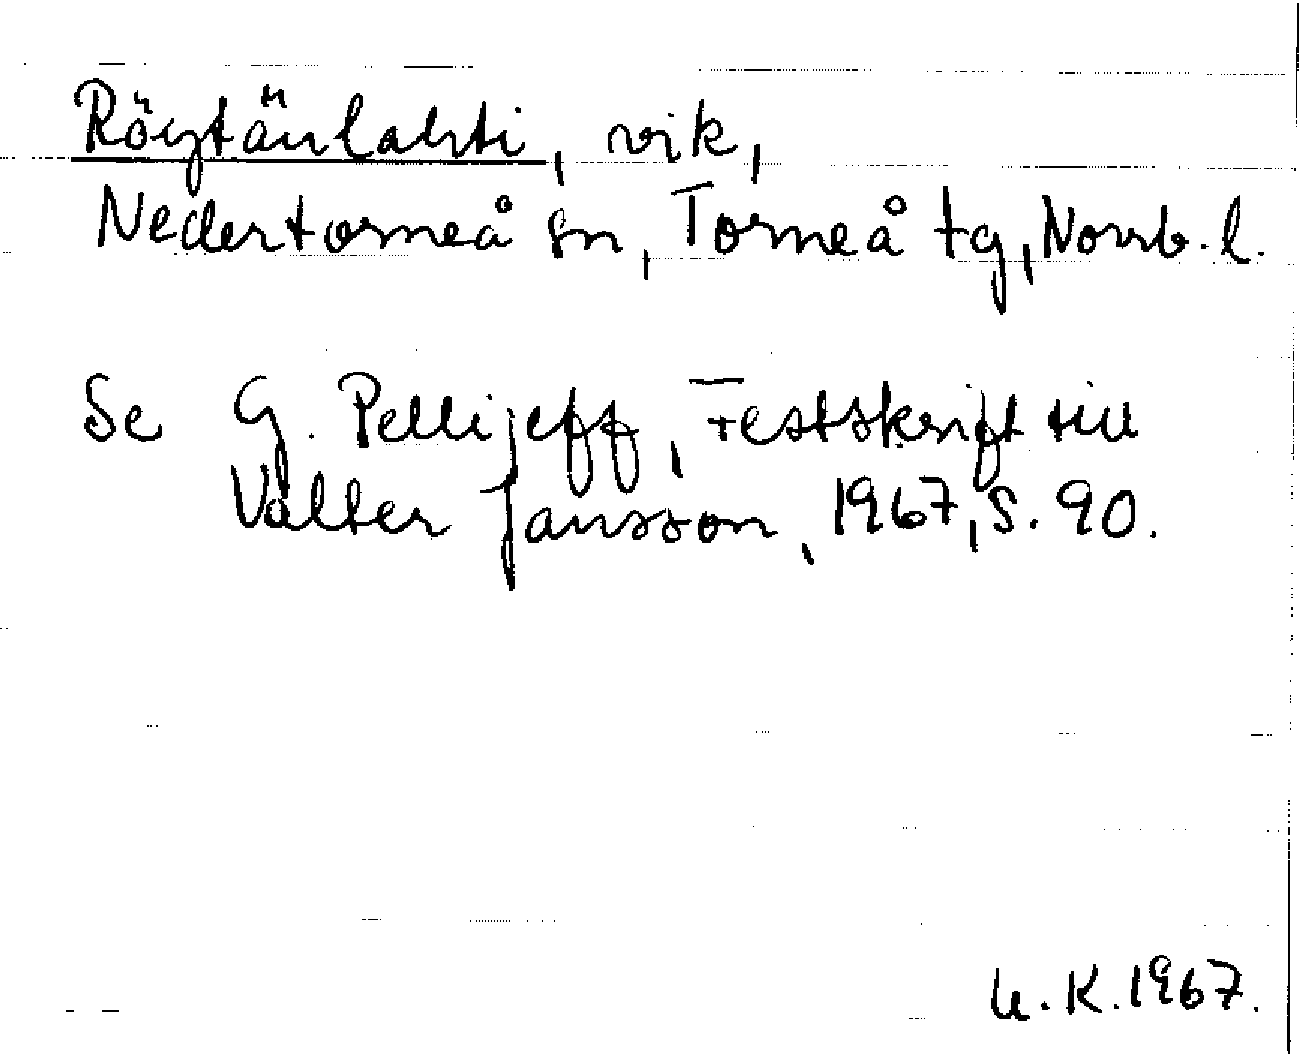 Röytänlahti, vik,
Nedertorneå sn, Torneå tg, Norrb. l.
Se G. Pellijeff, Festskrift till
Valter Jansson, 1967, s. 90.
U.K. 1967.